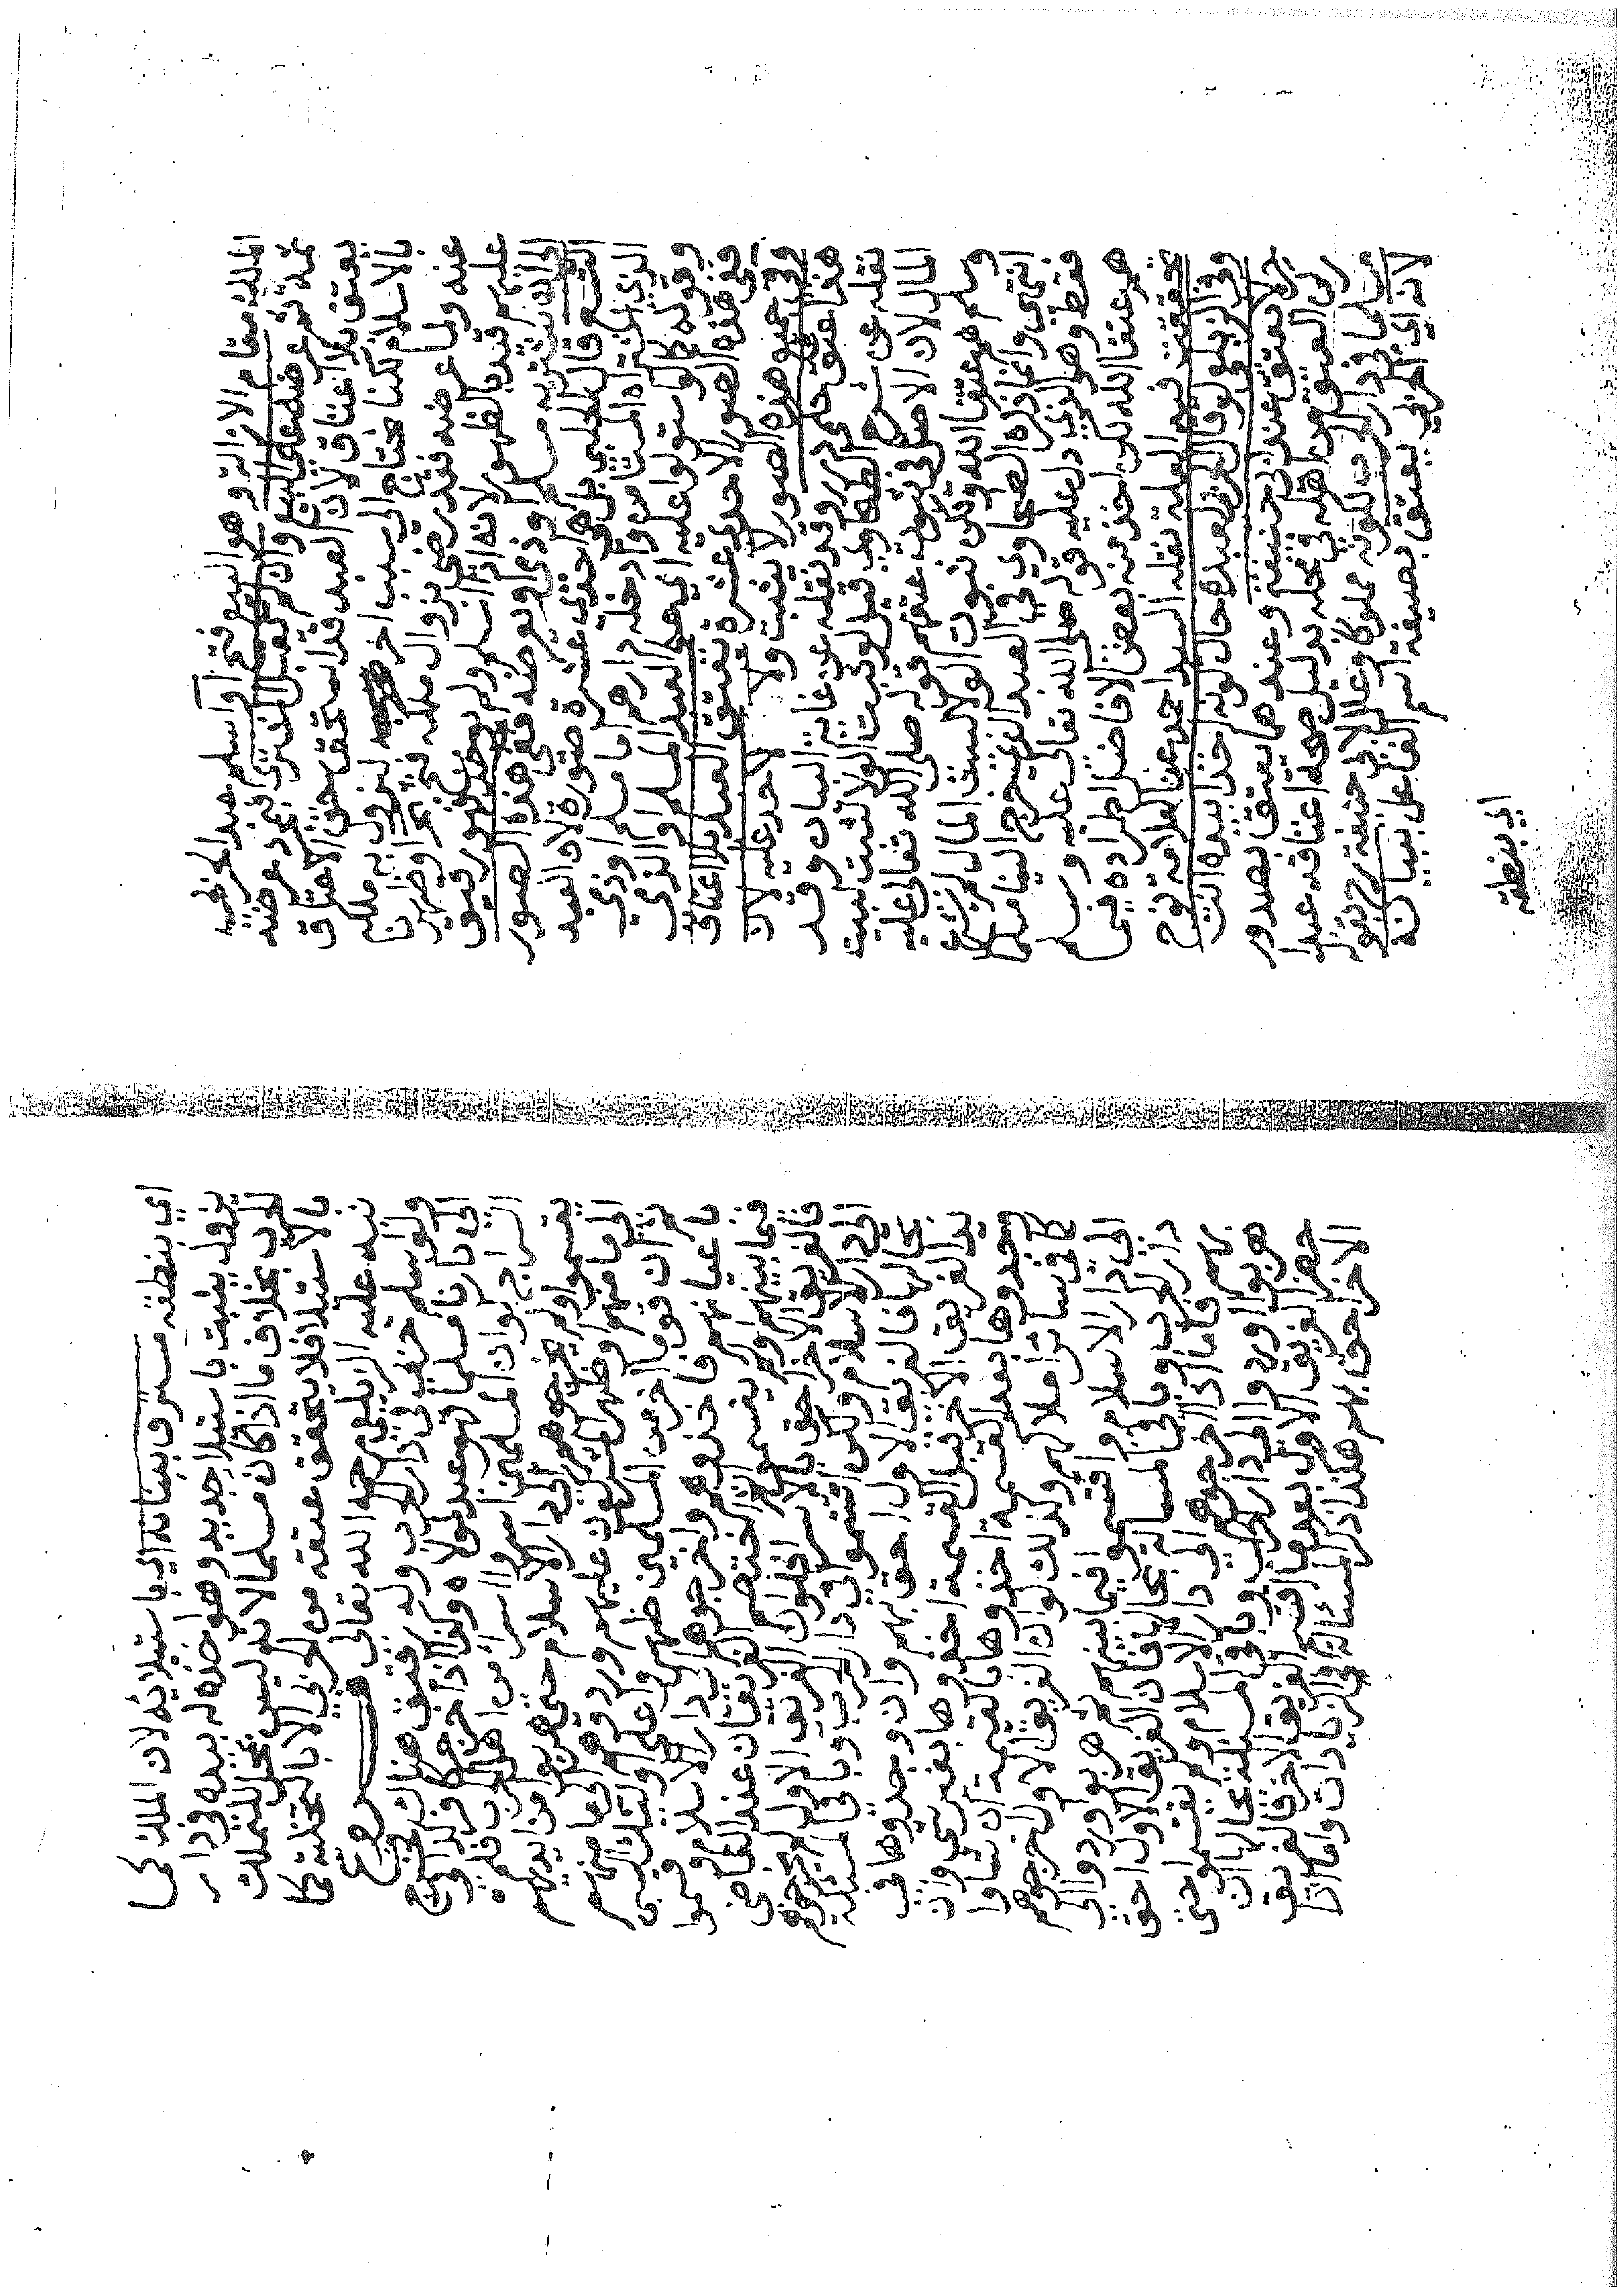 الملك مقام الازالة وهو البيع فتح او اسلم عبد الحربي
ثمة ثم عرضه على البيع وان لم يقبل المشتري فبمجرد عرضه
يعتق بلا اعتاق لان العبد قد استحق حق الاعتاق
بالاسلام لكنا نحتاج الى سبب اخر لنزول به ملكه
عنه ولما عرضه فقد رضي بزوال ملكه فتح او ظهرنا
عليهم قيد بالظهور لانه اذا اسلم ولم يوجد ظهور فهو رقيق
الى ان يشتريه مسلم او ذمي او يعرضه ففي هذه الصور
التسع قال الحلبي بل هي احدى عشرة صورة لان العبد
الذي اشتراه المستامن وادخله دارهم اما مسلم او ذمي
وقوله كما لو استولوا عليه اي على العبد المسلم والذمي
ففي هذه الصور الاحدى عشرة يعتق العبد بلا اعتاق
وفي جميع هذه الصور لا يثبت ولا لاحد عليه لان
هذا عتق حكمي درر وقد نقله عن غاية البيان وقد
نقله عن شرح الطحاوي قيل لو ثبت الولا لثبت لبيت
المال لان الاصل في ثبوت عتقهم قوله صلى الله تعالى عليه
وسلم هم عتقا الله ولكن ثبوت الولا لبيت المال لم يثبت
انتهى وانما ذكره الطحاوي في العبد الذي خرج الينا مسلما
فقط وهو الذي دل عليه قوله صلى الله تعالى عليه وسلم
هم عتقا الله لكن اخذ منه بعض الافاضل اطراده في
حققت فيه العلة نقله السيد احمد عن العلامة نوح
وفي الزيلعي لو قال الحربي لعبده حال كونه اخذا بيده انت
حر لا يعتق عند ابي حنيفة وعندهما يعتق لصدور
ركن العتق من اهله في محله بدليل صحة اعتاقه عبدا
مسلما في دار الحرب لكونه مملوكا وعلل لابي حنيفة بقوله
لانه اي الحربي يعتق بصيغة اسم الفاعل ببيانه
اي بنطقه
اي بنطقه مسترق ببنانه اي باستيلائه لان الملك كما
يزول يثبت باستيلا جديد وهو اخذه له بيده في دار
الحرب بخلاف ما اذا كان مسلما لانه ليس بمحل للتملك
بالاستيلا فلا يتحقق عتقه من الحربي الا بالتخلية كما
نبه عليه الزيلعي رحمه الله تعالى فرع
ولو اسلم حربي في دار الحرب وله رقيق هناك فخرج
الى دارنا مسلما فهو عبد لمولاه وكذا اذا خرج كافرا وفي
السراج لو ان المسلمين اسروا اسرا من اهل الحرب فلم
يقسموا ولم يخرجوهم الى دار الاسلام حتى هربوا من ايديهم
الى مامنهم وظهر المشركون عليهم وردوهم الى مامنهم
ثم ان قوما اخر من المسلمين ظهروا على اولئك الاسرى
باعيانهم فاخذوهم واخرجوهم الى دار الاسلام وقسموا
فيما بينهم او لم يقسموا ثم اختصم الفريقان عند القاضي
فالفريق الاخر احق بالاسرا ولو ان الفريق الاول لم يخرجوهم
الى دار الاسلام ولكن اقتسموا في دار الحرب وباقي المسئلة
بحالها فالفريق الاول احق بهم وان وجدوها في
يد الفريق الاخر قبل القسمة اخذوها بغير شي وان
وجدوها بعد القسمة اخذوها بالقيمة ان شاؤا
كما في سائر املاكهم وكذلك لو ان الفريق الاول اخرجوهم
الى دار الاسلام واقتسموا فيما بينهم ثم هربوا وردوا الى
دار الحرب وباقي المسئلة بحالها فان الفريق الاول احق
بهم فاما اذا اخرجوهم الى دار الاسلام ولم يقتسموا حتى
هربوا وردوا الى دار الحرب وباقي المسئلة بحالها ان
حضر الفريق الاول بعد ما اقتسم الفريق الاخر فالفريق
الاخر احق بهم هكذا ذكر المسئلة في الزيادات واما ان